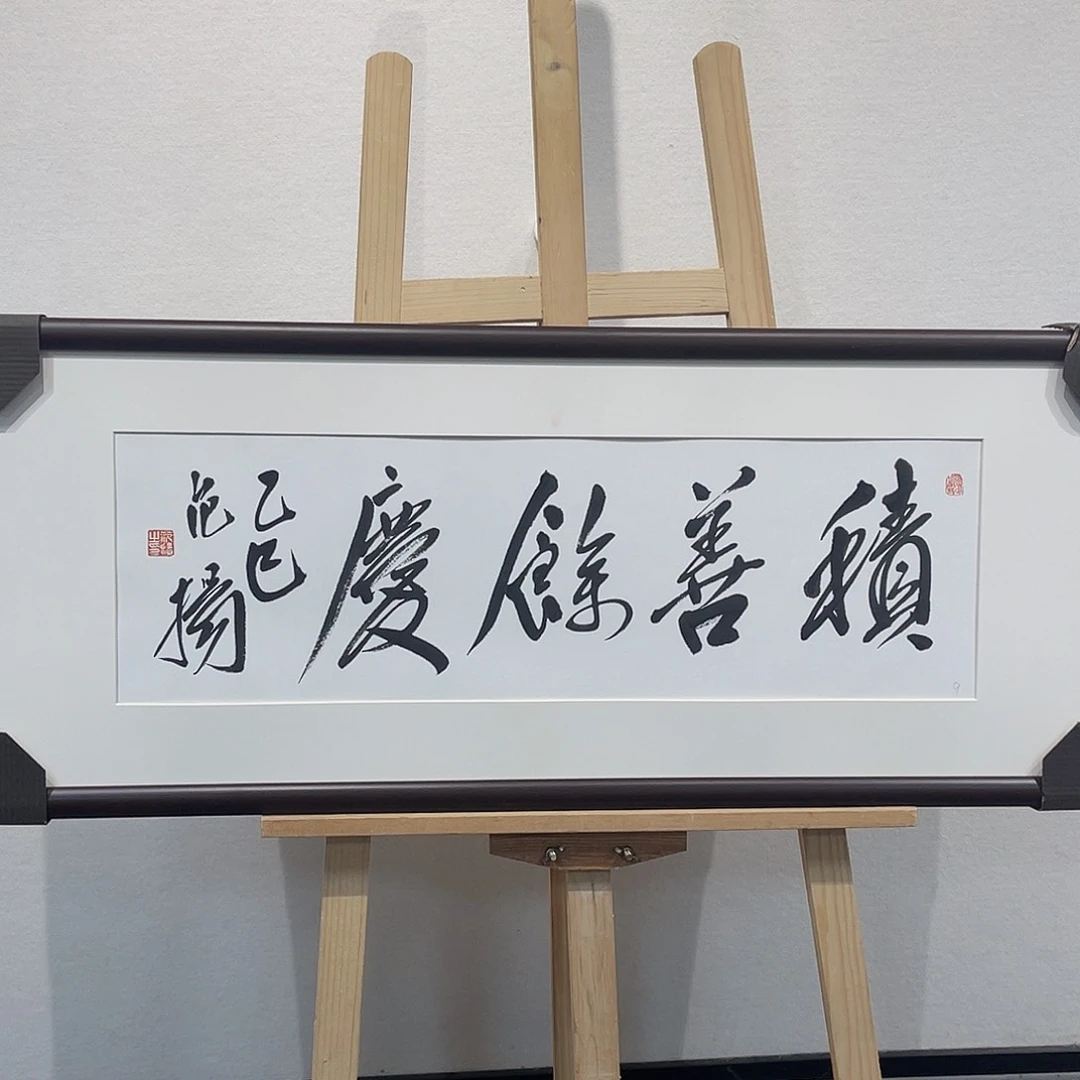 積善餘慶
乙巳
范揚